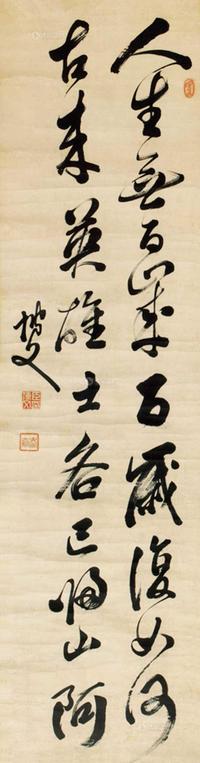 人生無百歲百歲復如何
古來英雄士各已歸山阿
坡叟